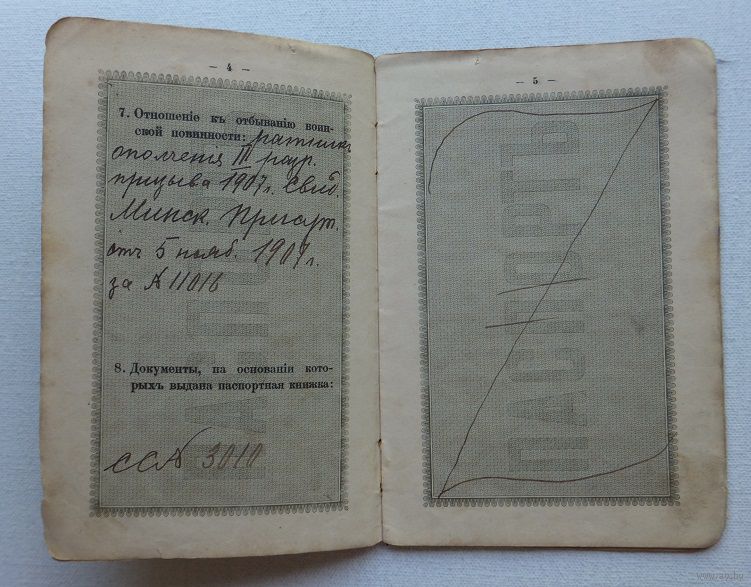 — 4 —
7. Отношеніе къ отбыванію воин-
ской повинности: ратникъ
ополченія III разр.
призыва 1907 г. Свид.
Минск. Присут.
отъ 5 нояб. 1907 г.
за № 11016
8. Документы, на основаніи кото-
рыхъ выдана паспортная книжка:
№ 3010
— 5 —
ПАСПОРТЪ